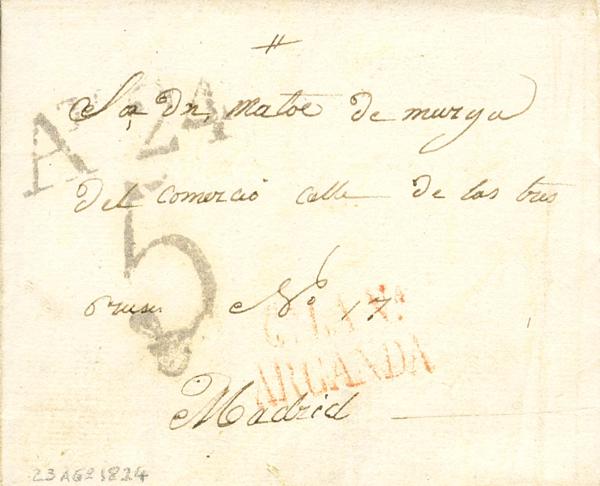 A 24
Sor Dn, Matoe de murga
del comercio calle de las tres
5
cruses No 17
C. LA Na.
ARGANDA
Madrid
23 AGo 1824